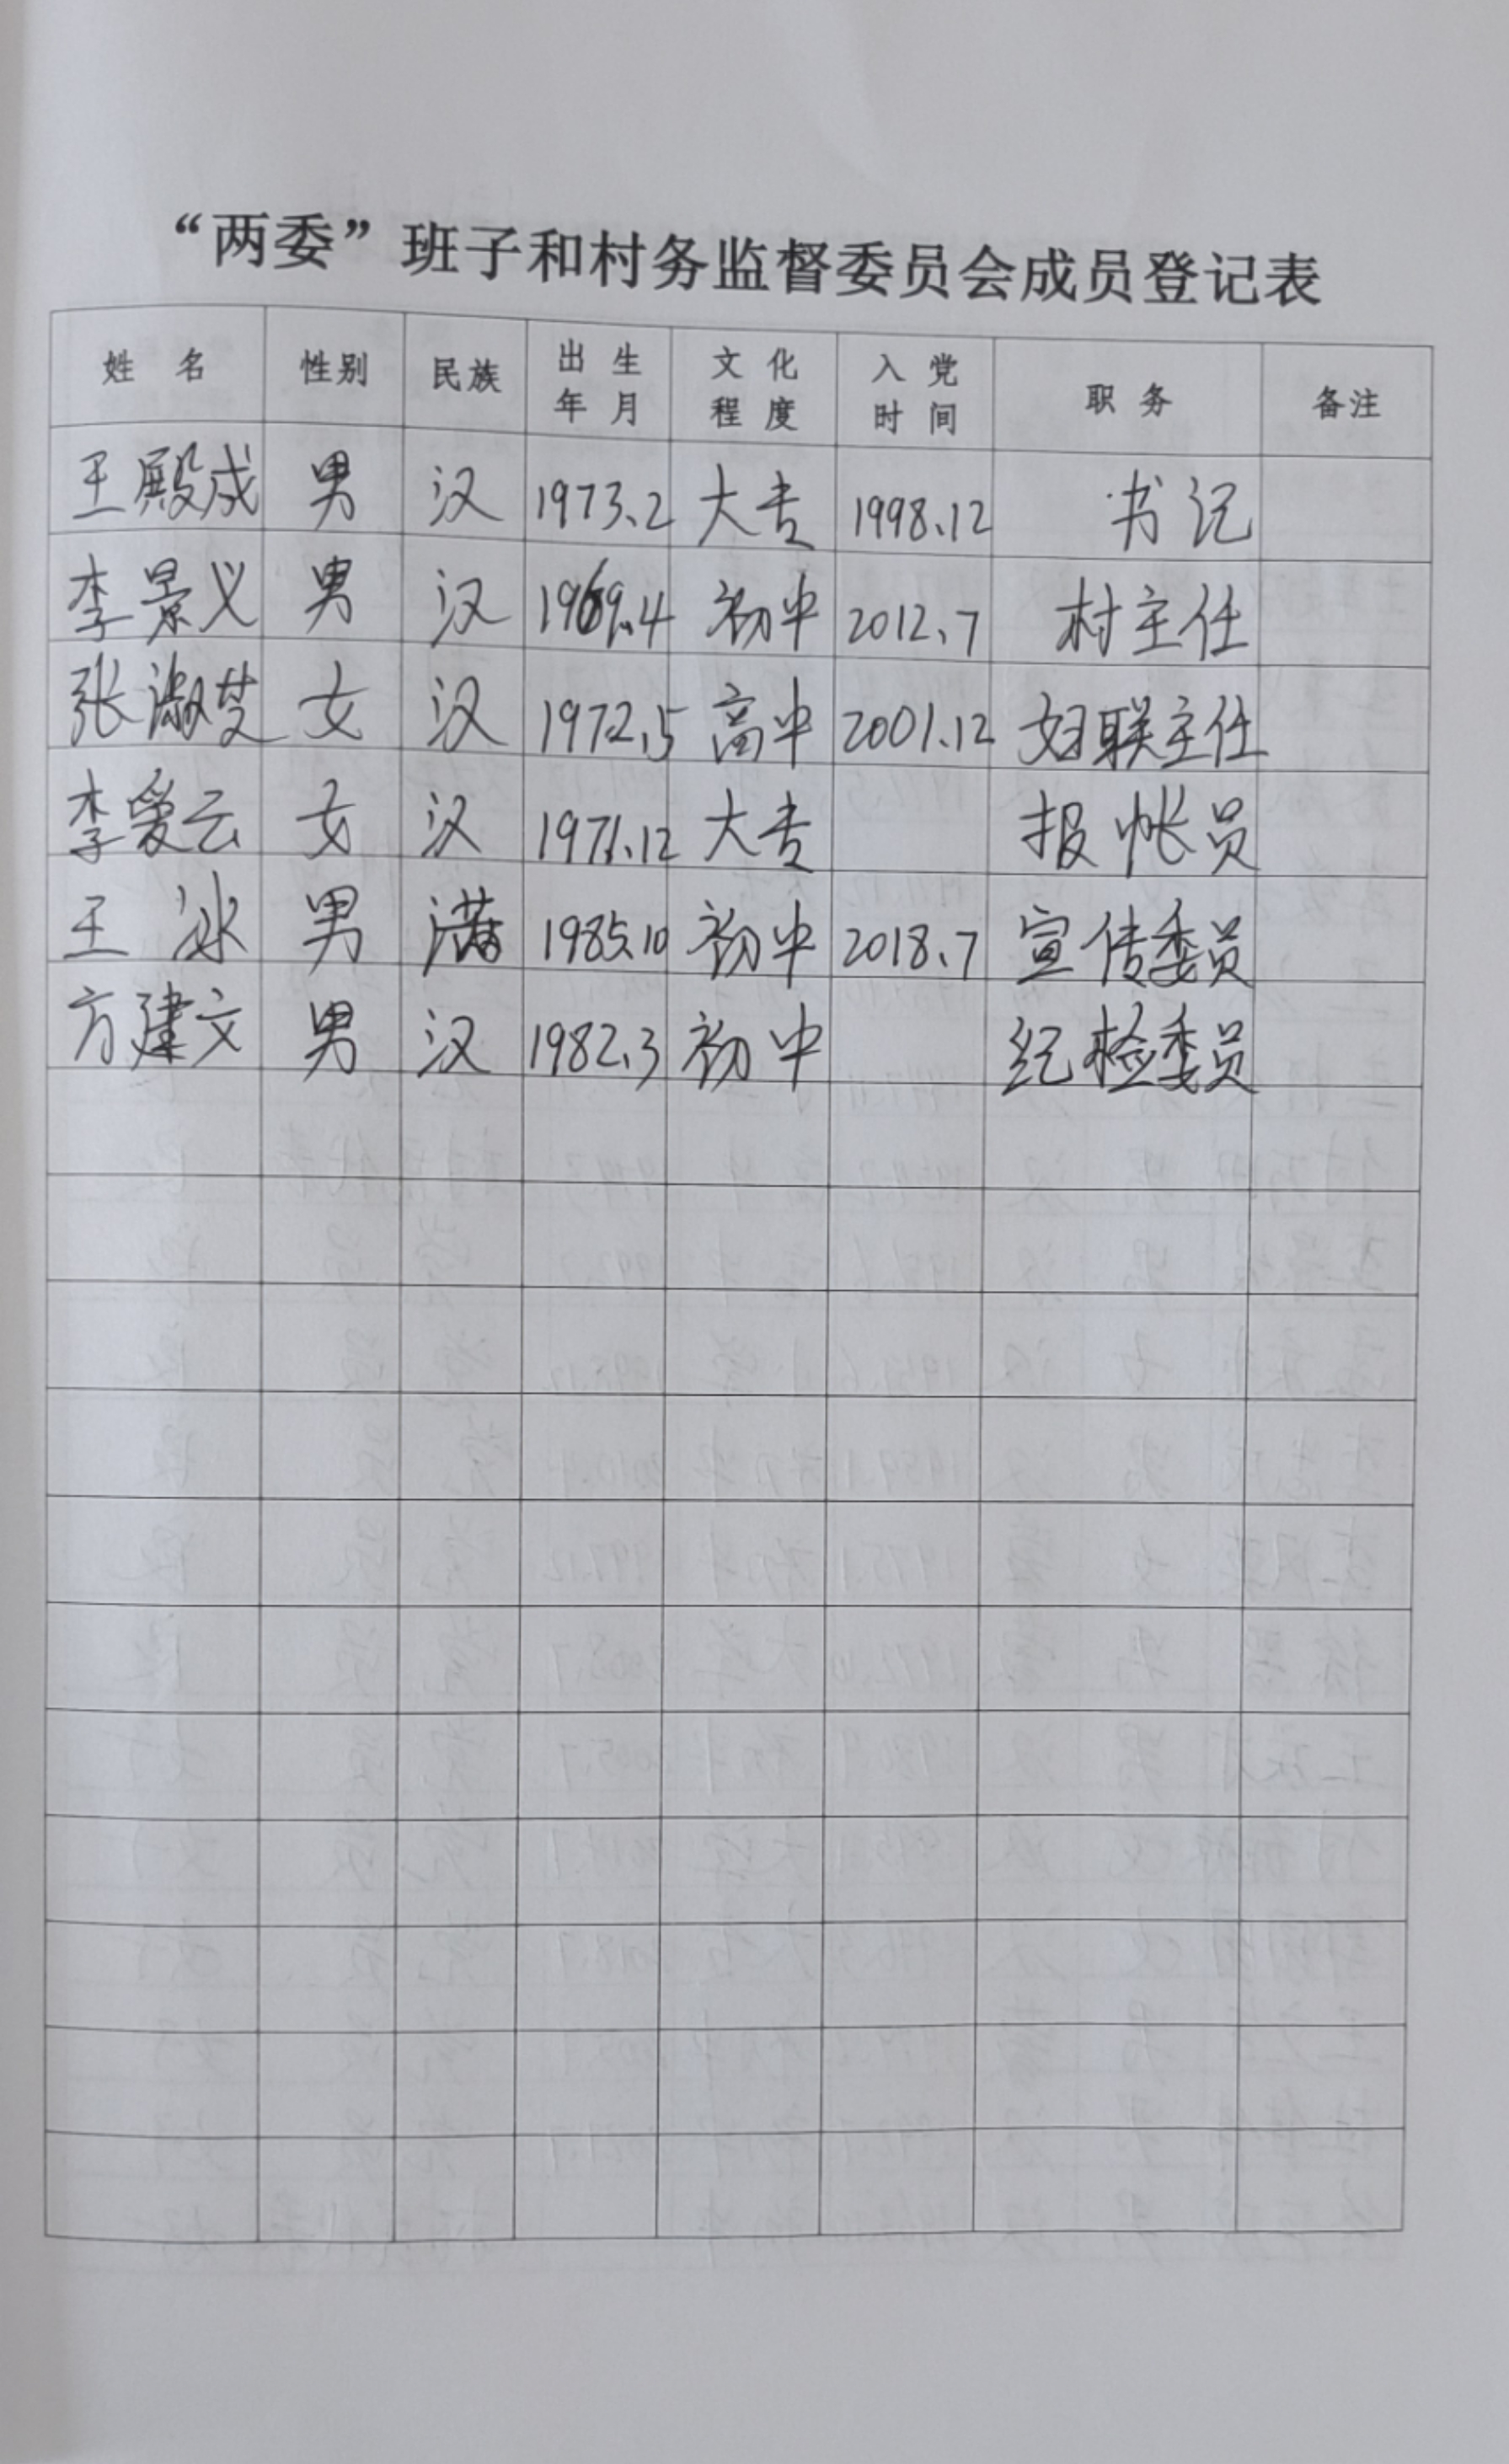 “两委”班子和村务监督委员会成员登记表
姓 名 性别 民族 出生年月 文化程度 入党时间 职务 备注
王殿成 男 汉 1973.2 大专 1998.12 书记
李景义 男 汉 1969.4 初中 2012.7 村主任
张淑芝 女 汉 1972.5 高中 2001.12 妇联主任
李爱云 女 汉 1971.12 大专 报帐员
王冰 男 满 1985.10 初中 2018.7 宣传委员
方建文 男 汉 1982.3 初中 纪检委员